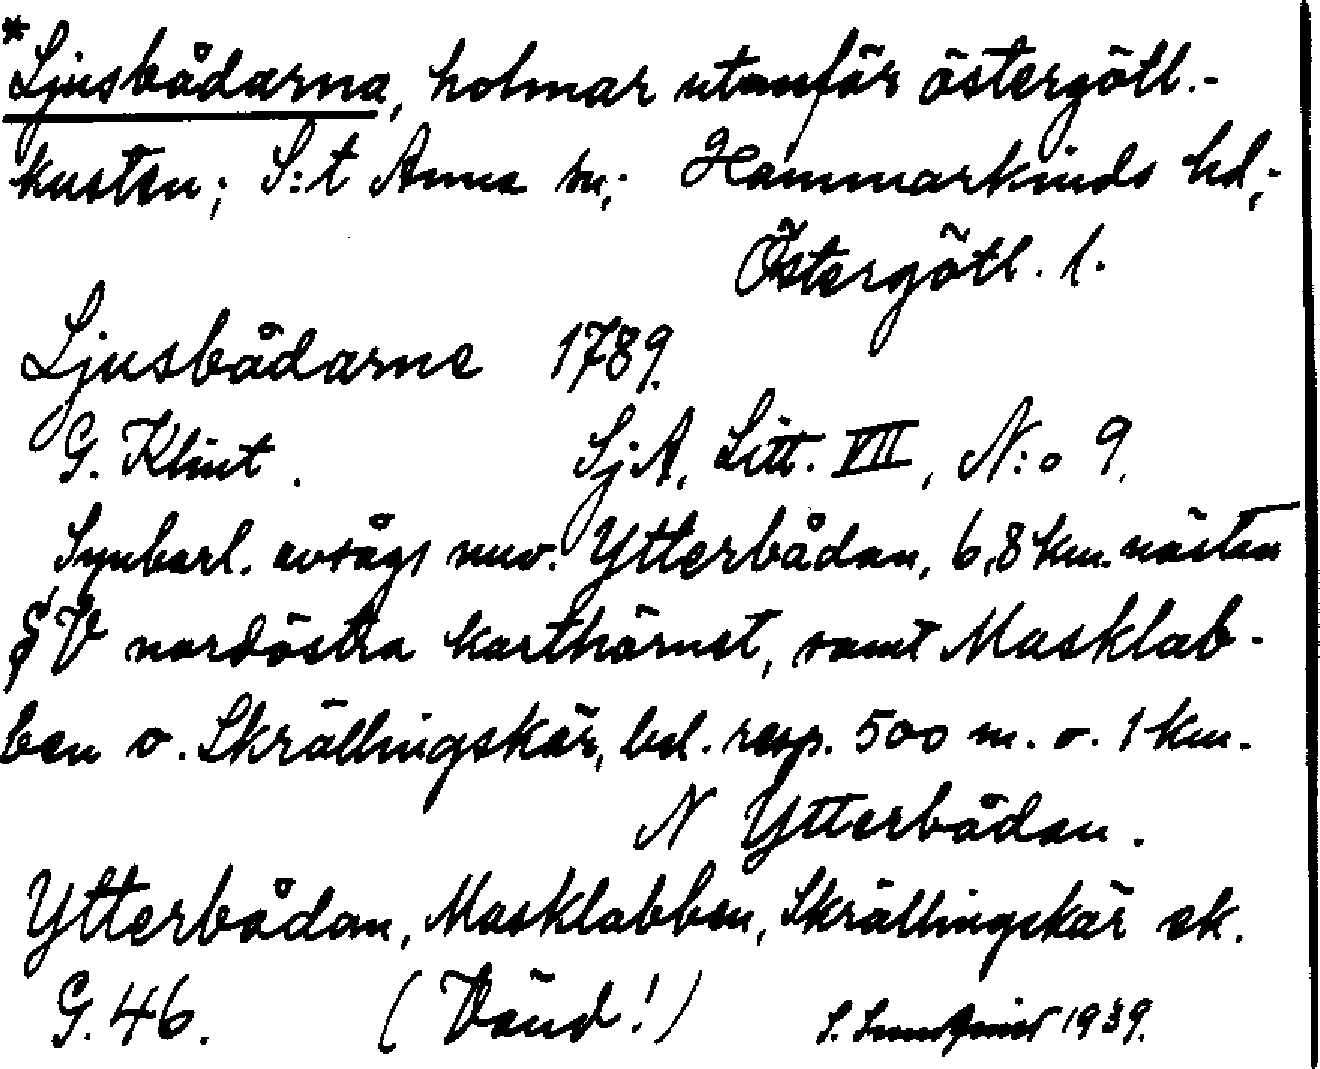 *Ljusbådarna, holmar utanför östergötl.-
kusten; S:t Anna sn; Hammarkinds hd;-
Östergötl. l.
Ljusbådarne 1789.
G. Klint. SjA, Litt. VII, N:o 9.
Synbarl. avsågs nuv. Ytterbådan, 6,8 km. nästan
V nordöstra karthörnet, samt Masklab-
ben o. Skrällingskär, bel. resp. 500 m. o. 1 km.
N Ytterbådan.
Ytterbådan, Masklabben, Skrällingskär ek.
G. 46. (Vänd!) S. 1939.